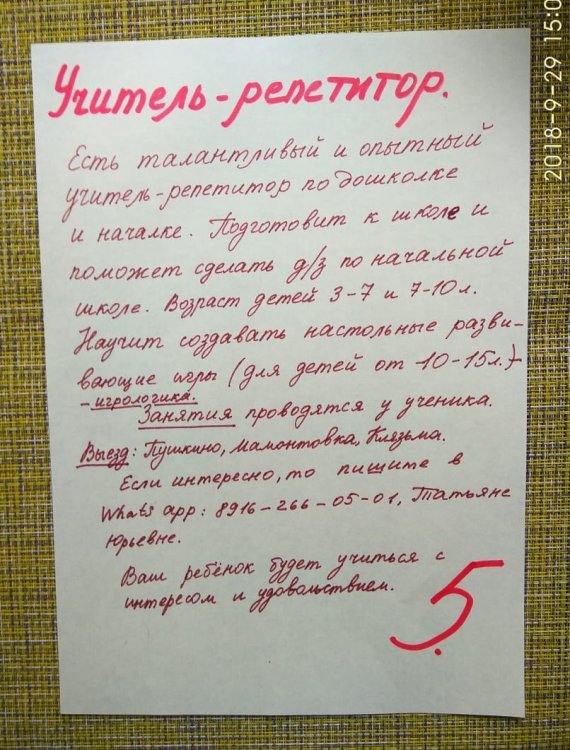 Учитель-репетитор.
Есть талантливый и опытный
учитель-репетитор по дошколке
и началке. Подготовит к школе и
поможет сделать д/з по начальной
школе. Возраст детей 3-7 и 7-10л.
Научит создавать настольные разви-
вающие игры (для детей от 10-15л.)-
-игрологика.
Занятия проводятся у ученика.
Выезд: Пушкино, Мамонтовка, Клязьма.
Если интересно, то пишите в
Whats app: 8916-266-05-01, Татьяне
Юрьевне.
Ваш ребёнок будет учиться с
интересом и удовольствием.
5.
2018-9-29 15:0